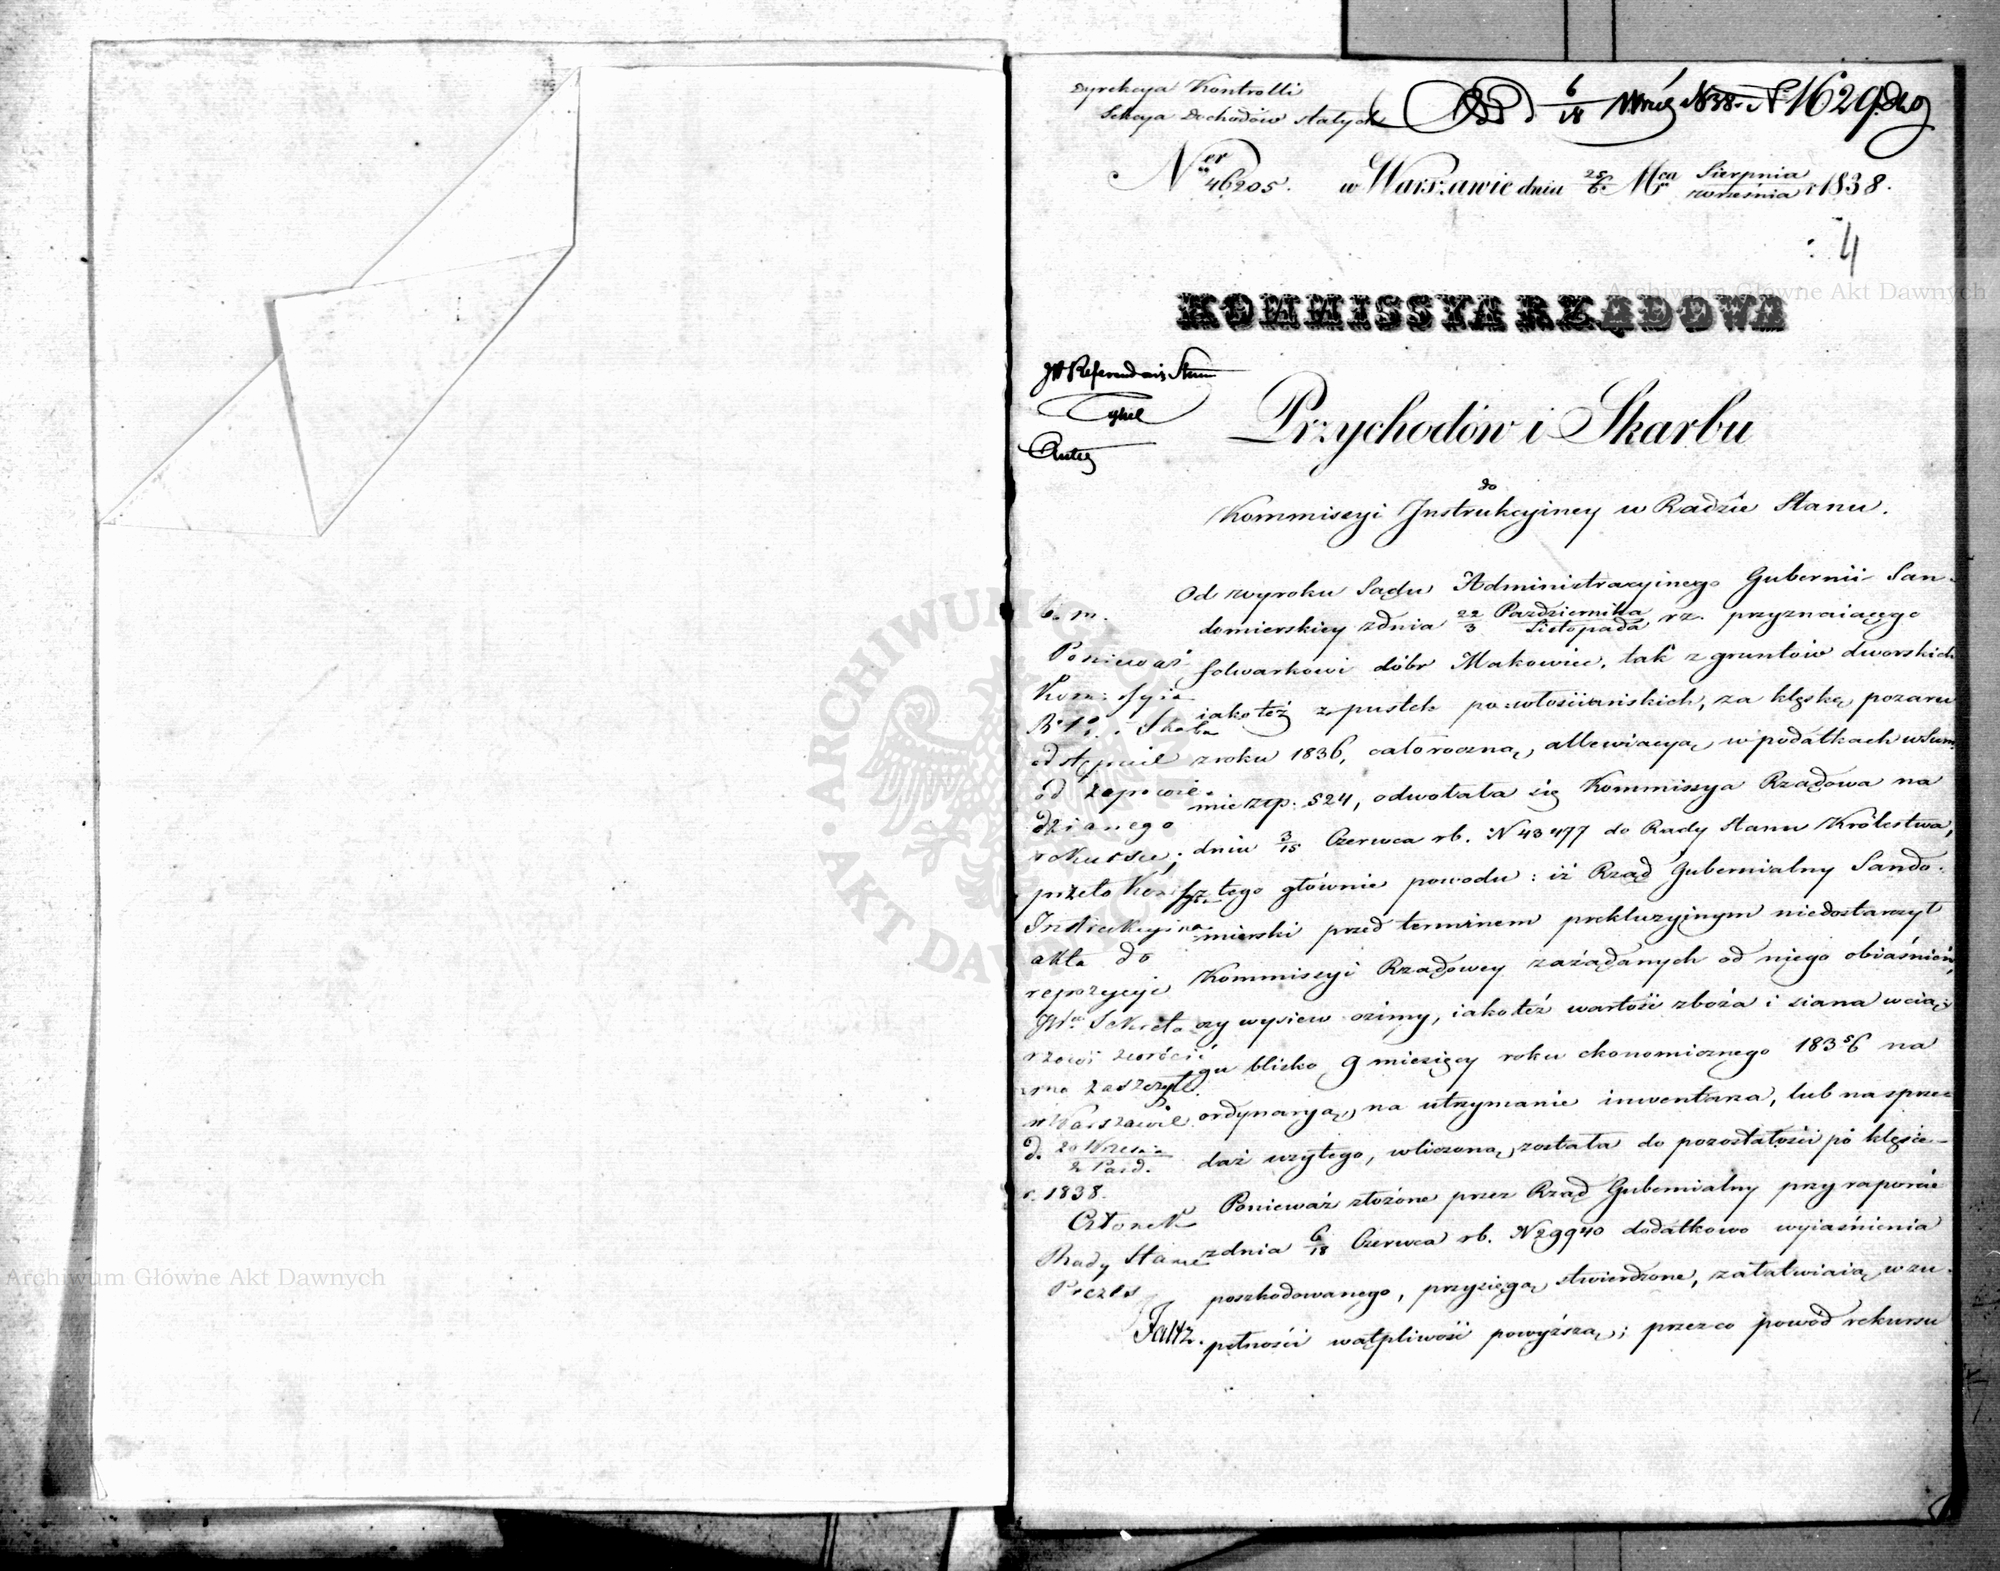 Dyrekcya Kontrolli
Sekcya Dochodów stałych
d 6/18 Wrześ 1838 N 1629
Ner 46205. w Warszawie dnia 25/6 Mca Sierpnia/września r 1838.
4
KOMMISSYA RZĄDOWA
Przychodów i Skarbu
do
Kommissyi Instrukcyiney w Radzie Stanu.
JW Referendarz Stanu
Od wyroku Sądu Administracyinego Gubernii San-
domierskiey zdnia 22/3 Października/Listopada rz. przyznaiącego
folwarkowi dóbr Makowiec, tak z gruntów dworskich
iakoteż z pustek po włościańskich, za klęskę pożaru
z roku 1836, całoroczną allewiacyą w podatkach w Sum-
mie złp. 524, odwołała się Kommissya Rządowa na
dniu 3/15 Czerwca rb. N 43477 do Rady Stanu Królestwa,
z tego głównie powodu: iż Rząd Gubernialny Sando-
mierski przed terminem prekluzyjnym niedostarczył
Kommissyi Rządowey zażądanych od niego obiaśnień,
czy wysiew ozimy, iakoteż wartość zboża i siana wcią-
gu blisko 9 miesięcy roku ekonomicznego 1835/6 na
ordynaryą, na utrzymanie inwentarza, lub na sprze-
daż użytego, wliczoną została do pozostałości po klęsce-
Ponieważ złożone przez Rząd Gubernialny przy raporcie
zdnia 6/18 Czerwca rb. N 29940 dodatkowo wyiaśnienia
poszkodowanego, przysięgą stwierdzone, załatwiaią w zu-
pełności wątpliwość powyższą; przez co powód rekursu
b. m.
Ponieważ
Kom: Ryią
P. i Skarbu
odstąpiła
od zapowie-
dzianego
rekursu;
przeto Kom:
Instrukcyina
akta do
repozycyi
JWu Sekreta-
rzowi zwrócić
ma zaszczyt.
w Warszawie
d. 20 Września/2 Paźd.
r. 1838.
Członek
Rady Stanu
Prezes
Faltz.
Archiwum Główne Akt Dawnych
Archiwum Główne Akt Dawnych
ARCHIWUM GŁÓWNE AKT DAWNYCH